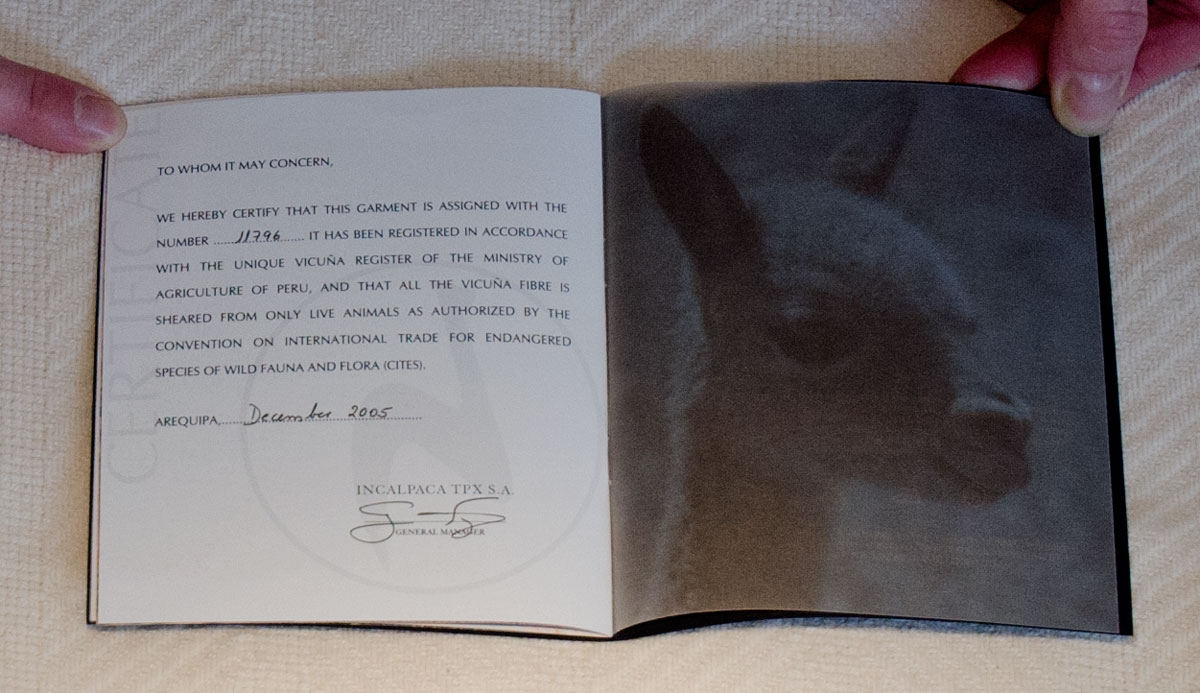 CERTIFICATE
TO WHOM IT MAY CONCERN,
WE HEREBY CERTIFY THAT THIS GARMENT IS ASSIGNED WITH THE
NUMBER ......11796...... IT HAS BEEN REGISTERED IN ACCORDANCE
WITH THE UNIQUE VICUÑA REGISTER OF THE MINISTRY OF
AGRICULTURE OF PERU, AND THAT ALL THE VICUÑA FIBRE IS
SHEARED FROM ONLY LIVE ANIMALS AS AUTHORIZED BY THE
CONVENTION ON INTERNATIONAL TRADE FOR ENDANGERED
SPECIES OF WILD FAUNA AND FLORA (CITES).
AREQUIPA,......December 2005......
INCALPACA TPX S.A.
GENERAL MANAGER